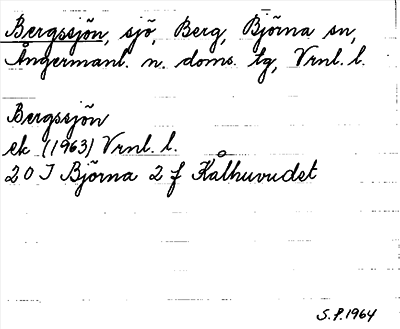 Bergssjön, sjö, Berg, Björna sn,
Ångermanl. n. doms. lg, Vrnl. l.
Bergssjön
ek (1963) Vrnl. l.
20 I Björna 2 f Kålhuvudet
S.P. 1964